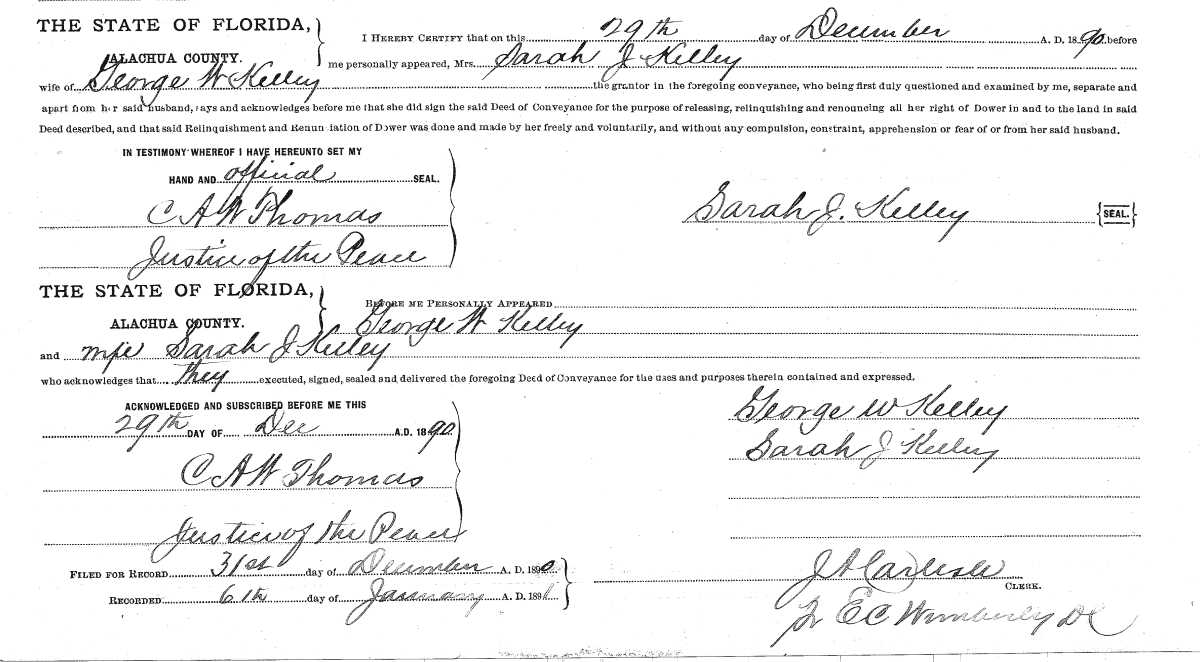 THE STATE OF FLORIDA,
ALACHUA COUNTY.
I HEREBY CERTIFY that on this 29th day of December A. D. 1890 before
me personally appeared, Mrs. Sarah J Kelley
wife of George W Kelley the grantor in the foregoing conveyance, who being first duly questioned and examined by me, separate and
apart from her said husband, says and acknowledges before me that she did sign the said Deed of Conveyance for the purpose of releasing, relinquishing and renouncing all her right of Dower in and to the land in said
Deed described, and that said Relinquishment and Renun iation of Dower was done and made by her freely and voluntarily, and without any compulsion, constraint, apprehension or fear of or from her said husband.
IN TESTIMONY WHEREOF I HAVE HEREUNTO SET MY
HAND AND official SEAL.
C A W Thomas
Justice of the Peace
Sarah J. Kelley {SEAL.}
THE STATE OF FLORIDA,
ALACHUA COUNTY.
BEFORE ME PERSONALLY APPEARED
George W Kelley
and wife Sarah J Kelley
who acknowledges that they executed, signed, sealed and delivered the foregoing Deed of Conveyance for the uses and purposes therein contained and expressed.
ACKNOWLEDGED AND SUBSCRIBED BEFORE ME THIS
29th DAY OF Dec A.D. 1890
C A W Thomas
Justice of the Peace
George W Kelley
Sarah J Kelley
FILED FOR RECORD 31st day of December A. D. 1890
RECORDED 6th day of January A. D. 1891
J A Carlisle
CLERK.
E C Wimberly DC